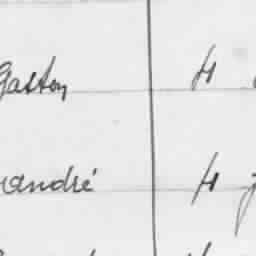 Gaston H
andré H